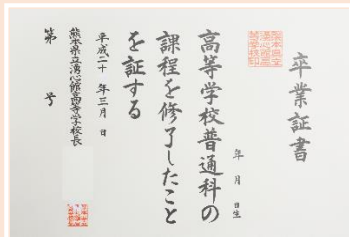 卒業証書
年 月 日生
高等学校普通科の
課程を修了したこと
を証する
平成二十 年三月 日
熊本県立湧心館高等学校長
第 号